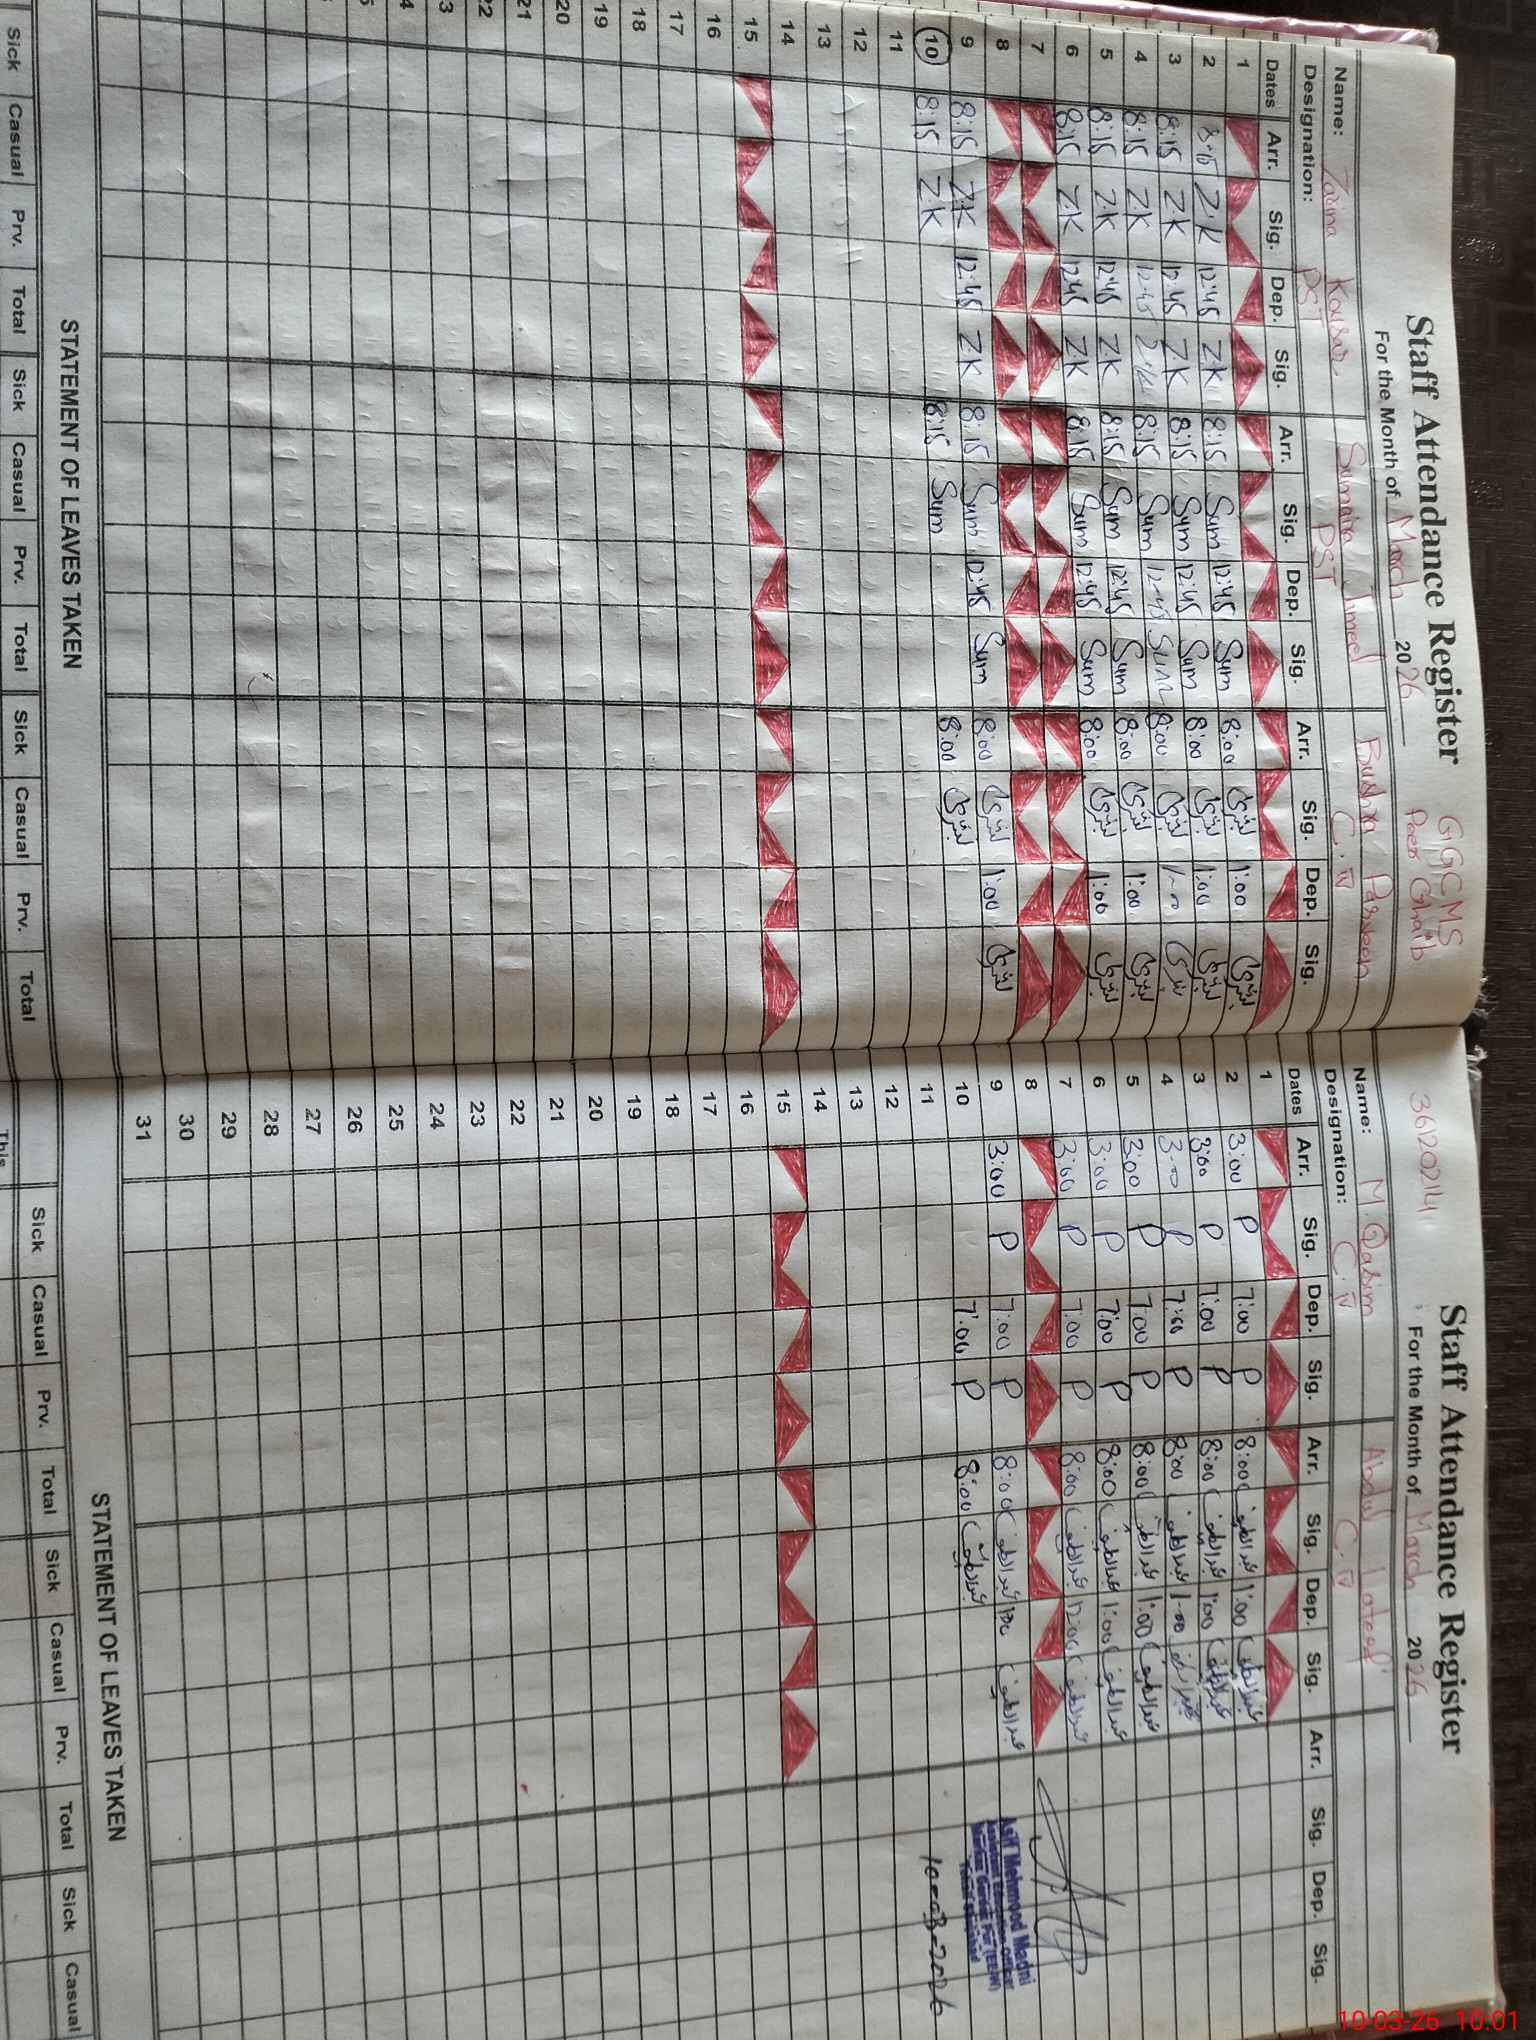 Staff Attendance Register
GGCMS
Peer Ghaib
For the Month of March 2026
Name: Zarina Kousar Sumaira Jmeel Bushra Parveen
Designation: PST PST C.IV
Dates Arr. Sig. Dep. Sig. Arr. Sig. Dep. Sig. Arr. Sig. Dep. Sig.
1
2 8:15 Z.K 12:45 ZK 8:15 Sum 12:45 Sum 8:00 بشریٰ 1:00 بشریٰ
3 8:15 ZK 12:45 ZK 8:15 Sum 12:45 Sum 8:00 بشریٰ 1:00 بشریٰ
4 8:15 ZK 12:45 ZK 8:15 Sum 12:45 Sum 8:00 بشریٰ 1:00 بشریٰ
5 8:15 ZK 12:45 ZK 8:15 Sum 12:45 Sum 8:00 بشریٰ 1:00 بشریٰ
6 8:15 ZK 12:45 ZK 8:15 Sum 12:45 Sum 8:00 بشریٰ 1:00 بشریٰ
7
8
9 8:15 ZK 12:45 ZK 8:15 Sum 12:45 Sum 8:00 بشریٰ 1:00 بشریٰ
10 8:15 ZK 8:15 Sum 8:00 بشریٰ
11
12
13
14
15
16
17
18
19
20
21
22
STATEMENT OF LEAVES TAKEN
Sick Casual Prv. Total Sick Casual Prv. Total Sick Casual Prv. Total
36120214
Staff Attendance Register
For the Month of March 2026
Name: M. Qasim Abdul Lateef
Designation: C.IV C.IV
Dates Arr. Sig. Dep. Sig. Arr. Sig. Dep. Sig. Arr. Sig. Dep. Sig.
1
2 3:00 P 7:00 P 8:00 عبدالطیف 1:00 عبدالطیف
3 3:00 P 7:00 P 8:00 عبدالطیف 1:00 عبدالطیف
4 3:00 P 7:00 P 8:00 عبدالطیف 1:00 عبدالطیف
5 3:00 P 7:00 P 8:00 عبدالطیف 1:00 عبدالطیف
6 3:00 P 7:00 P 8:00 عبدالطیف 1:00 عبدالطیف
7 3:00 P 7:00 P 8:00 عبدالطیف 12:00 عبدالطیف
8
9 3:00 P 7:00 P 8:00 عبدالطیف 1:00 عبدالطیف
10 7:00 P 8:00 عبدالطیف
11
12
13
14
15
16
17
18
19
20
21
22
23
24
25
26
27
28
29
30
31
Asif Mehmood Madni
Assistant Education Officer
10-03-2026
STATEMENT OF LEAVES TAKEN
Sick Casual Prv. Total Sick Casual Prv. Total Sick Casual
This
10-03-26 10:01